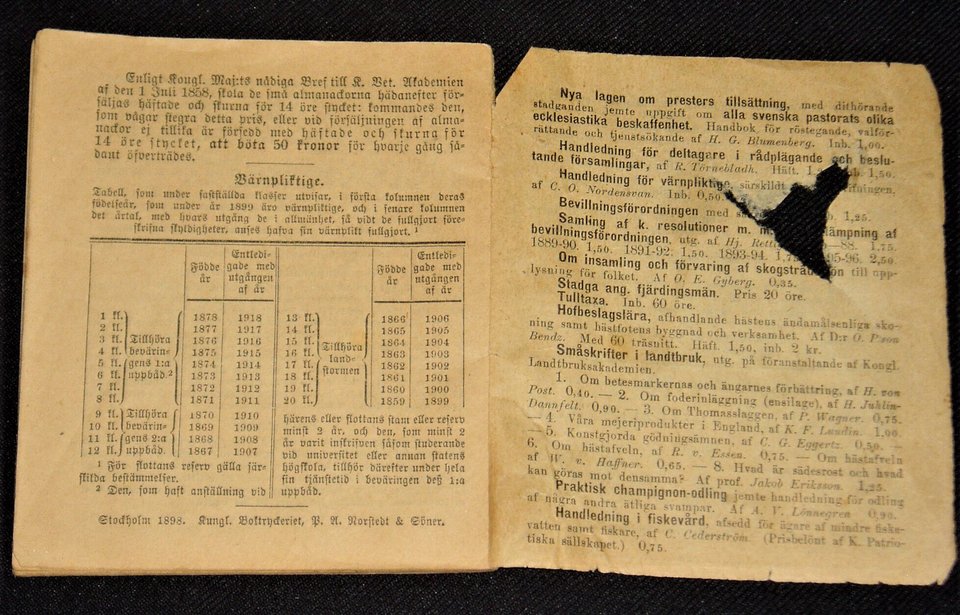 Enligt Kongl. Maj:ts nådiga Bref till K. Vet. Akademien
af den 1 Juli 1858, skola de små almanackorna hädanefter för-
säljas häftade och skurna för 14 öre stycket: kommandes den,
som vågar stegra detta pris, eller vid försäljningen af alma-
nackor ej tillika är försedd med häftade och skurna för
14 öre stycket, att böta 50 kronor för hvarje gång så-
dant öfverträdes.
Värnpliktige.
Tabell, som under fastställda klasser utvisar, i första kolumnen deras
födelseår, som under år 1899 äro värnpliktige, och i senare kolumnen
det årtal, med hvars utgång de i allmänhet, så vidt de fullgjort före-
skrifna skyldigheter, anses hafva sin värnplikt fullgjort. ¹
Födde år | Entledigade med utgången af år
1 kl. 1878 1918
2 kl. 1877 1917
3 kl. Tillhöra 1876 1916
4 kl. bevärin- 1875 1915
5 kl. gens 1:a 1874 1914
6 kl. uppbåd.² 1873 1913
7 kl. 1872 1912
8 kl. 1871 1911
9 kl. Tillhöra 1870 1910
10 kl. bevärin- 1869 1909
11 kl. gens 2:a 1868 1908
12 kl. uppbåd 1867 1907
¹ För flottans reserv gälla sär-
skilda bestämmelser.
² Den, som haft anställning vid
Födde år | Entledigade med utgången af år
13 kl. 1866 1906
14 kl. 1865 1905
15 kl. 1864 1904
16 kl. Tillhöra 1863 1903
17 kl. land- 1862 1902
18 kl. stormen 1861 1901
19 kl. 1860 1900
20 kl. 1859 1899
härens eller flottans stam eller reserv
minst 2 år, och den, som minst 2
år varit inskrifven såsom studerande
vid universitet eller annan statens
högskola, tillhör därefter under hela
sin tjänstetid i beväringen deß 1:a
uppbåd.
Stockholm 1898. Kungl. Boktryckeriet, P. A. Norstedt & Söner.
Nya lagen om presters tillsättning, med dithörande
stadganden jemte uppgift om alla svenska pastorats olika
ecklesiastika beskaffenhet. Handbok för röstegande, valför-
rättande och tjenstsökande af H. G. Blumenberg. Inb. 1,00.
Handledning för deltagare i rådplägande och beslu-
tande församlingar, af R. Törnebladh. Häft. Inb. 1,50.
Handledning för värnpliktige, särskildt
af C. O. Nordensvan. Inb. 0,50.
Bevillningsförordningen med 1,25.
Samling af k. resolutioner m. m. lämpning af
bevillningsförordningen, utg. af Hj. Rett —88. 1,75.
1889-90. 1,50. 1891-92. 1,50. 1893-94. 1,75. 95-96. 2,50.
Om insamling och förvaring af skogsträd ön till upp-
lysning för folket. Af O. E. Gyberg. 0,35.
Stadga ang. fjärdingsmän. Pris 20 öre.
Tulltaxa. Inb. 60 öre.
Hofbeslagslära, afhandlande hästens ändamålsenliga sko-
ning samt hästfotens byggnad och verksamhet. Af D:r O. P:son
Bendz. Med 60 träsnitt. Häft. 1,50, inb. 2 kr.
Småskrifter i landtbruk, utg. på föranstaltande af Kongl.
Landtbruksakademien.
1. Om betesmarkernas och ängarnes förbättring, af H. von
Post. 0,40. — 2. Om foderinläggning (ensilage), af H. Juhlin-
Dannfelt. 0,90. — 3. Om Thomasslaggen, af P. Wagner. 0,75.
— 4. Våra mejeriprodukter i England, af K. F. Lundin. 1,00.
— 5. Konstgjorda gödningsämnen, af C. G. Eggertz. 0,50. —
6. Om hästafveln, af R. v. Essen. 0,75. — Om hästafveln
af W. v. Haffner. 0,65. — 8. Hvad är sädesrost och hvad
kan göras mot densamma? Af prof. Jakob Eriksson. 1,25.
Praktisk champignon-odling jemte handledning för odling
af några andra ätliga svampar. Af A. V. Lönnegren 0,90.
Handledning i fiskevård, afsedd för ägare af mindre fiske-
vatten samt fiskare, af C. Cederström (Prisbelönt af K. Patrio-
tiska sällskapet.) 0,75.